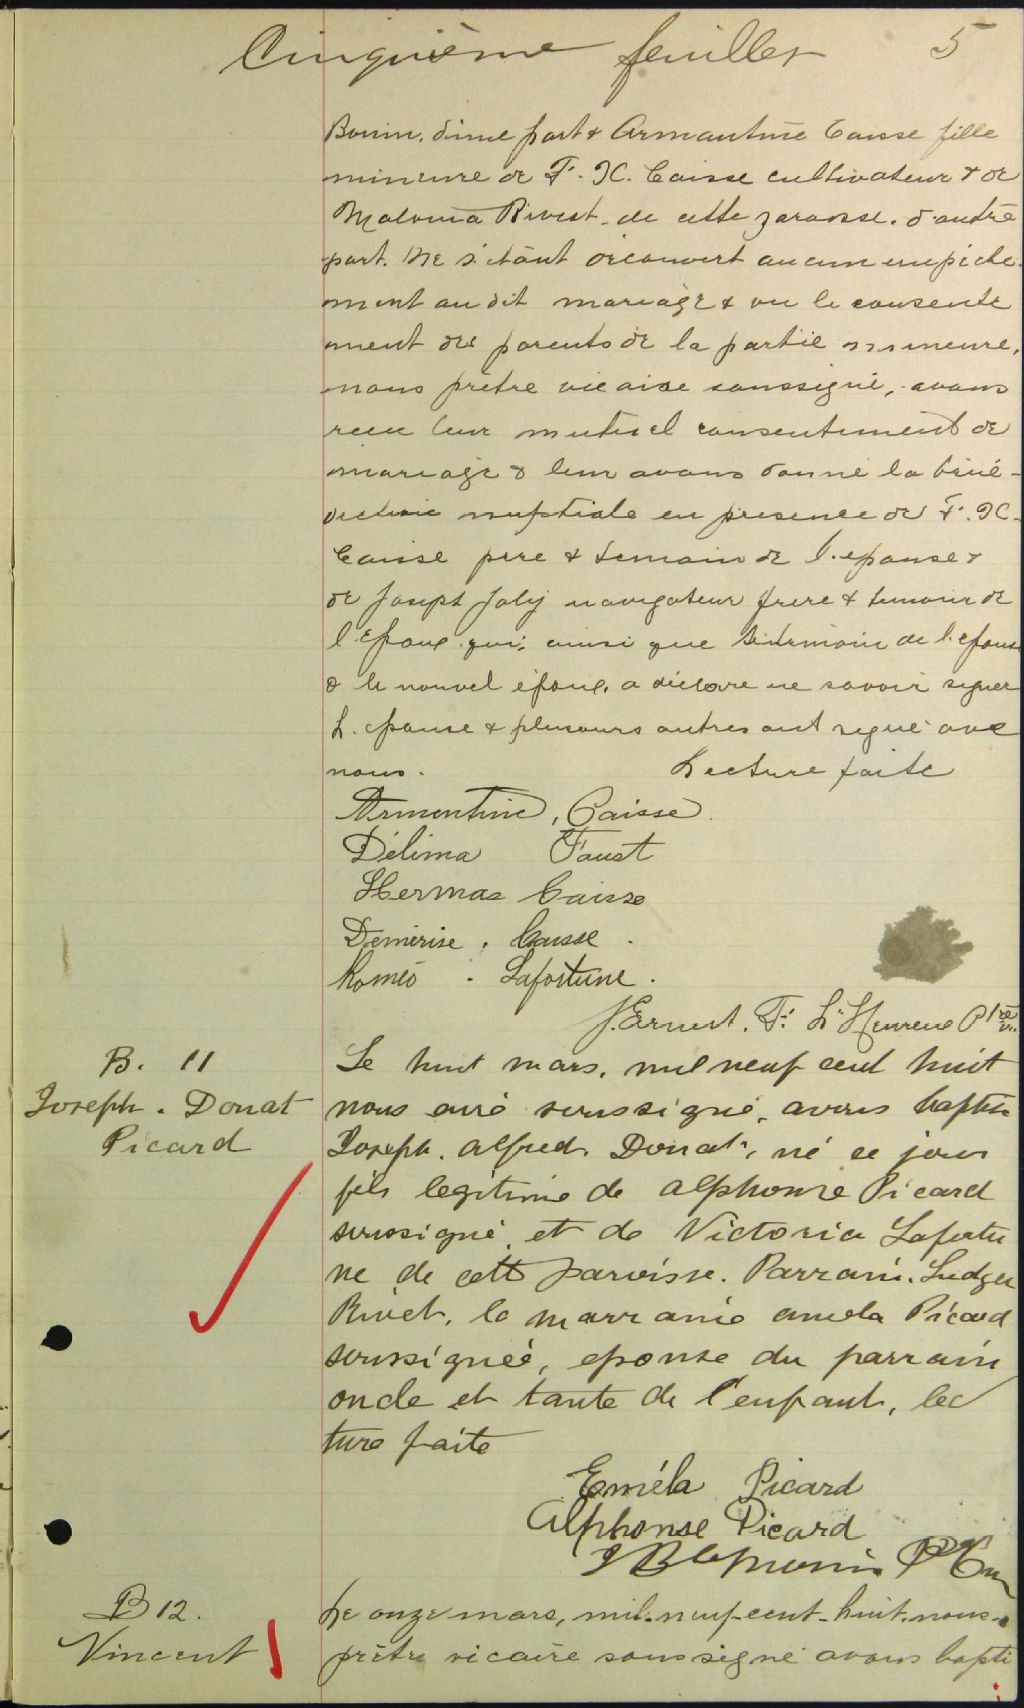 Cinquième feuillet 5
Bonin, d'une part & Armantine Caisse fille
mineure de F. X. Caisse cultivateur & de
Malvina Rivest de cette paroisse. d'autre
part. Ne s'étant découvert aucun empêche-
ment au dit mariage & vu le consente
ment des parents de la partie mineure,
nous prêtre vicaire soussigné, avons
reçu leur mutuel consentement de
mariage & leur avons donné la béné-
diction nuptiale en présence de F. X.
Caisse père & temoin de l'epouse &
de Joseph Joly navigateur frere & temoin de
l'epoux qui, ainsi que le temoin de l'epouse
& le nouvel époux, a déclaré ne savoir signer
L'epouse & plusieurs autres ont signé avec
nous. Lecture faite
Armentine, Caisse.
Délima Faust
Hermas Caisse
Demérise. Caisse.
Roméo. Lafortune.
J. Ernest. F. L'Heureux Ptre vic.
B. 11
Joseph. Donat
Picard
Le huit mars, mil neuf cent huit
nous curé soussigné, avons baptisé
Joseph. Alfred. Donat, né ce jour
fils legitime de Alphonse Picard
soussigné, et de Victoria Lafortu
ne de cette paroisse. Parrain. Ludger
Rivet, la marraine Picard
soussignée, epouse du parrain
oncle et tante de l'enfant, lec
ture faite
Eméla Picard
Alphonse Picard
Ptre
B 12.
Vincent
Le onze mars, mil-neuf-cent-huit, nous-
prêtre vicaire soussigné avons bapti